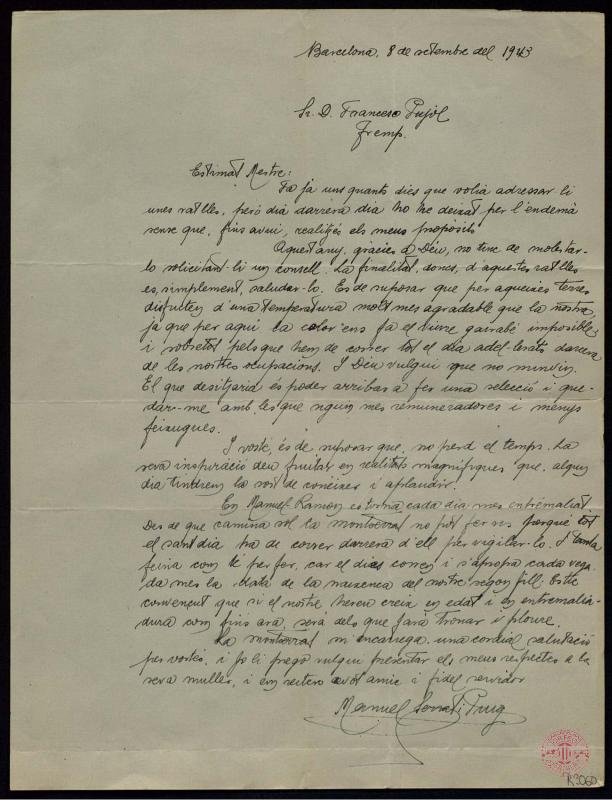 Barcelona, 8 de setembre del 1943
Sr. D. Francesc Pujol
Tremp.
Estimat Mestre:
Fa jà uns quants dies que volia adressar-li
unes ratlles, però dia darrera dia ho he deixat per l'endemà
sense que, fins avui, realitzés els meus propòsits
Aquest any, gràcies a Déu, no tinc de molestar-
lo solicitant-li un consell. La finalitat, doncs, d'aquestes ratlles
es, simplement, saludar-lo. Es de suposar que per aqueixes terres
disfruten d'una temperatura molt mes agradable que la nostra,
jà que per aqui la calor ens fa el viure gairabé impossible
i sobretot pels que hem de correr tot el dia adelerats darrera
de les nostres ocupacions. I Déu vulgui que no minvin.
El que desitjaria és poder arribar a fer una selecció i que-
dar-me amb les que siguin mes remuneradores i menys
feixugues.
I vosté, és de suposar que, no perd el temps. La
seva inspiració deu fruitar en realitats magnifiques que, algun
dia tindrem la sort de conèixer i aplaudir.
En Manuel-Ramon es torna cada dia mes entremaliat.
Des de que camina sol la Montserrat no pot fer res perquè tot
el sant dia ha de correr darrera d'ell per vigilar-lo. I tanta
feina com té per fer, car el dies corren i s'apropa cada vega-
da mes la data de la naixença del nostre segon fill. Estic
convençut que si el nostre hereu creix en edat i en entremalia-
dura com fins ara, serà dels que farà tronar i ploure.
La Montserrat m'encarrega una cordial salutació
per vostés, i jo li prego vulgui presentar els meus respectes a la
seva muller, i em reitero avot amic i fidel servidor
Manuel Serrat i Puig
R.3060